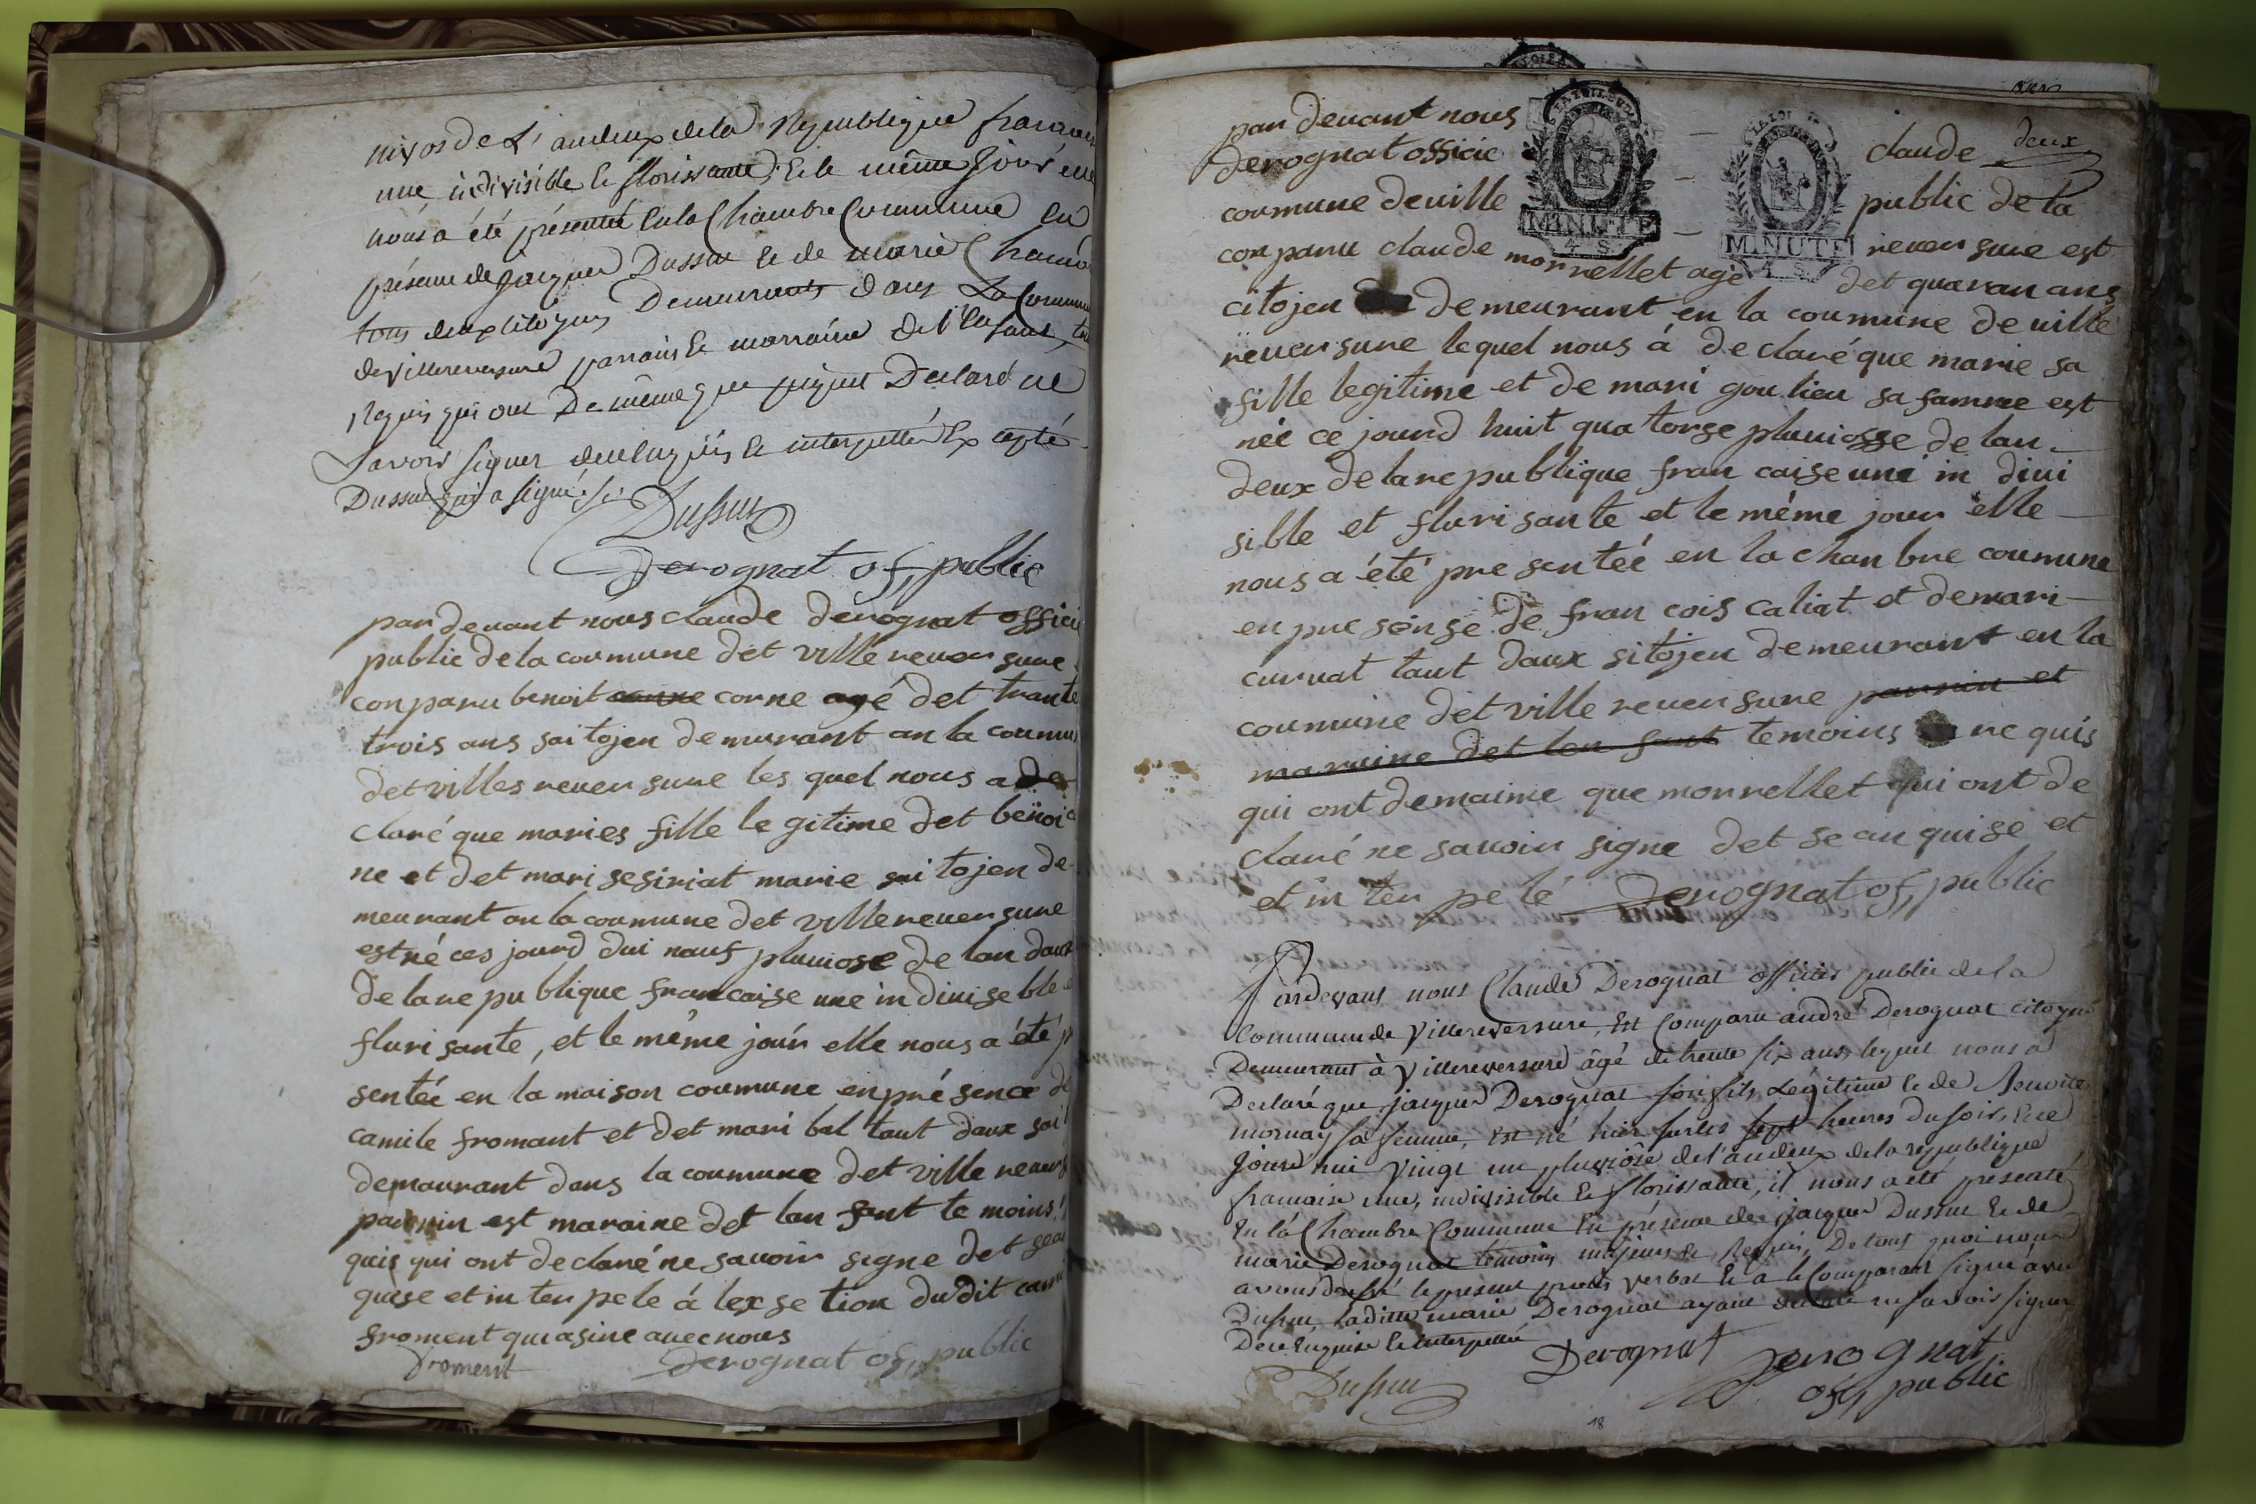 nivos de L'andeux dela Republique francaise
une indivisible & florissante. & le même Jour elle
nous a été présentée En la Chambre Commune En
présence de Jacques Dussuc & de marie Chanou
tous deux citoyens Demeurants dans La Commune
de Villereversure parrain & marraine de l'Enfant,
Requis qui ont De même que Declaré ne
Savoir signer deux Enquis & interpellés Excepté
Dussuc qui a signé.
Dussuc
Derognat off, public
par devant nous claude derognat officie
public de la coumune det ville rever sure
conparu benoit corne agé det trante
trois ans sai tojen demurant an la coumun
det villes rever sure les quel nous a de
claré que maries fille le gitime det benoi
ne et det mari sesiriat marie sai tojen de
meurant an la coumune det ville rever sure
est né ces jourd dui nauf pluviose de lan daux
de la re publique francaise une in divise ble
fluri sante, et le même jour elle nous a été p
sentée en la maison coumune en pré sence de
camile fromant et det mari bal tout daux sai
demaurant dans la coumune det ville revers
parrin est maraine det lan fant te moins
quis qui ont declaré ne savoir signe det sean
quise et in ten pe le á lex se tion du dit cami
froment qui a sine avec nous
froment derognat off, public
deux
par devant nous claude
derognat officie public de la
coumune de ville rever sure est
conparu claude morrellet agé det quaran ans
citojen demeurant en la coumune de ville
rever sure lequel nous á declaré que marie sa
fille legitime et de mari goulieu sa famme est
néé ce jourd huit qua torse pluviosse de lan
deux de la re publique fran caise une in divi
sible et fluri sante et le même jour elle
nous a été pre sentéé en la chan bre coumune
en pre sen se de fran cois caliat et de mari
curvat taut daux sitojen demeurant en la
coumune det ville rever sure parrin et
maraine det len fant temoins re quis
qui ont demaime que morrellet qui ont de
claré ne savoir signe det se an quise et
et in ten pe lé Derognat off, public
Pardevant nous Claude Derognat officier public de la
Commune de Villereversure, Est Comparu andré Derognat citoyen
Demeurant à Villereversure âgé de trente six ans, lequel nous a
Declaré que jacques Derognat son fils Légitime & de Benoite
mornay sa femme, Est né hier sur les sept heures du soir, & ce
Jourd'hui vingt un pluviôse de l'andeux dela republique
francaise une, indivisible & florissante, il nous a été présenté
En la Chambre Commune En présence de jacques Dussuc & de
marie Derognat témoins majeurs & Requis, De tout quoi nous
avons dressé le présent procès verbal & a le Comparant signé avec
Dussuc, laditte marie Derognat ayant declaré ne savoir signer
De ce Enquise & interpellée
Derognat
Dussuc
Derognat
off, public
18
MINUTE
4. S.
MINUTE
4. S.